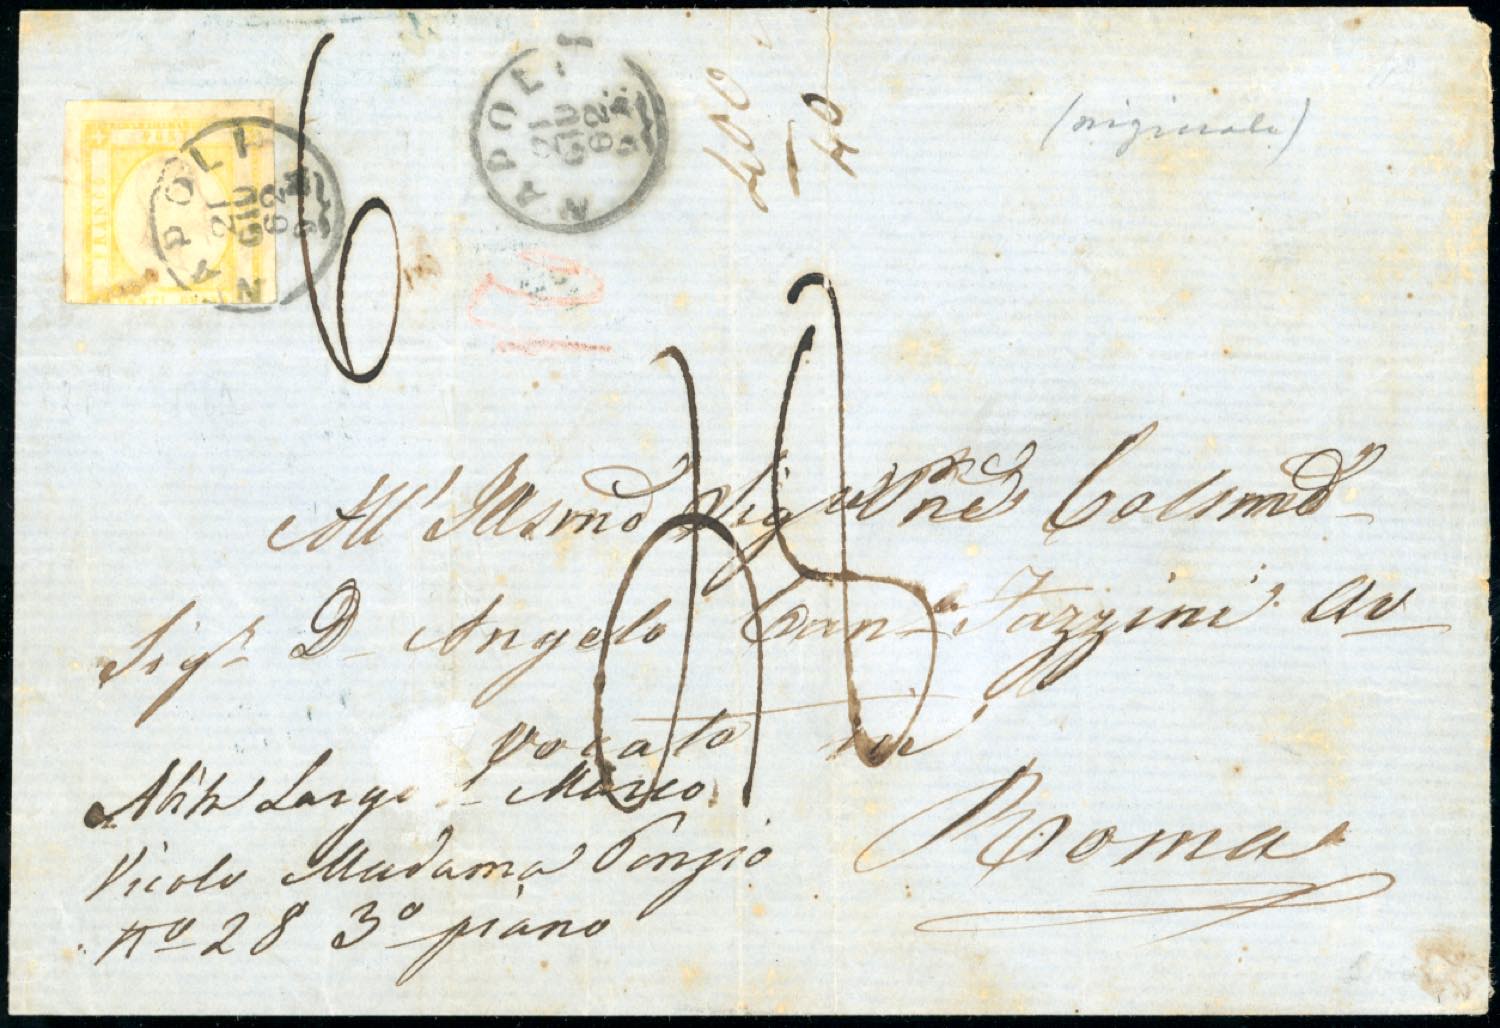 NAPOLI
21
GIU
62
NAPOLI
21
GIU
62
FRANCO
6
400
40
(originale)
10
All' Illsmo Sig Pne Colsmo
Sigr D Angelo Can Tazzini Av
vocato in
Roma
Largo Marco
Vicolo Madama Ponzio
No 28 3o piano